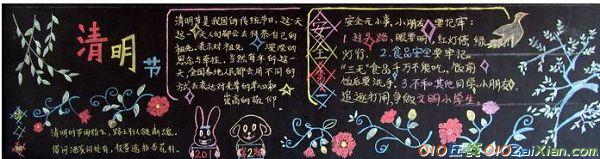 清明
节
清明时节雨纷纷，路上行人欲断魂。
借问酒家何处有，牧童遥指杏花村。
清明节是我国的传统节日，这一天
这一天人们都会去祭奠自己的
祖先，表示对祖先
思念与牵挂，当然每年的这一
天，全国各地人民都会用不同的
方式去表达对先辈的孝心和
崇高的敬仰
安全
安全无小事，小朋友要记牢：
1.过马路，眼要明，红灯停，绿
灯行，2.食品安全要牢记，
"三无"食品千万不能吃，饭前
饭后要洗手，3.不和其他同学、小朋友
追逐打闹，争做文明小学生。
010在线
010ZaiXian.com